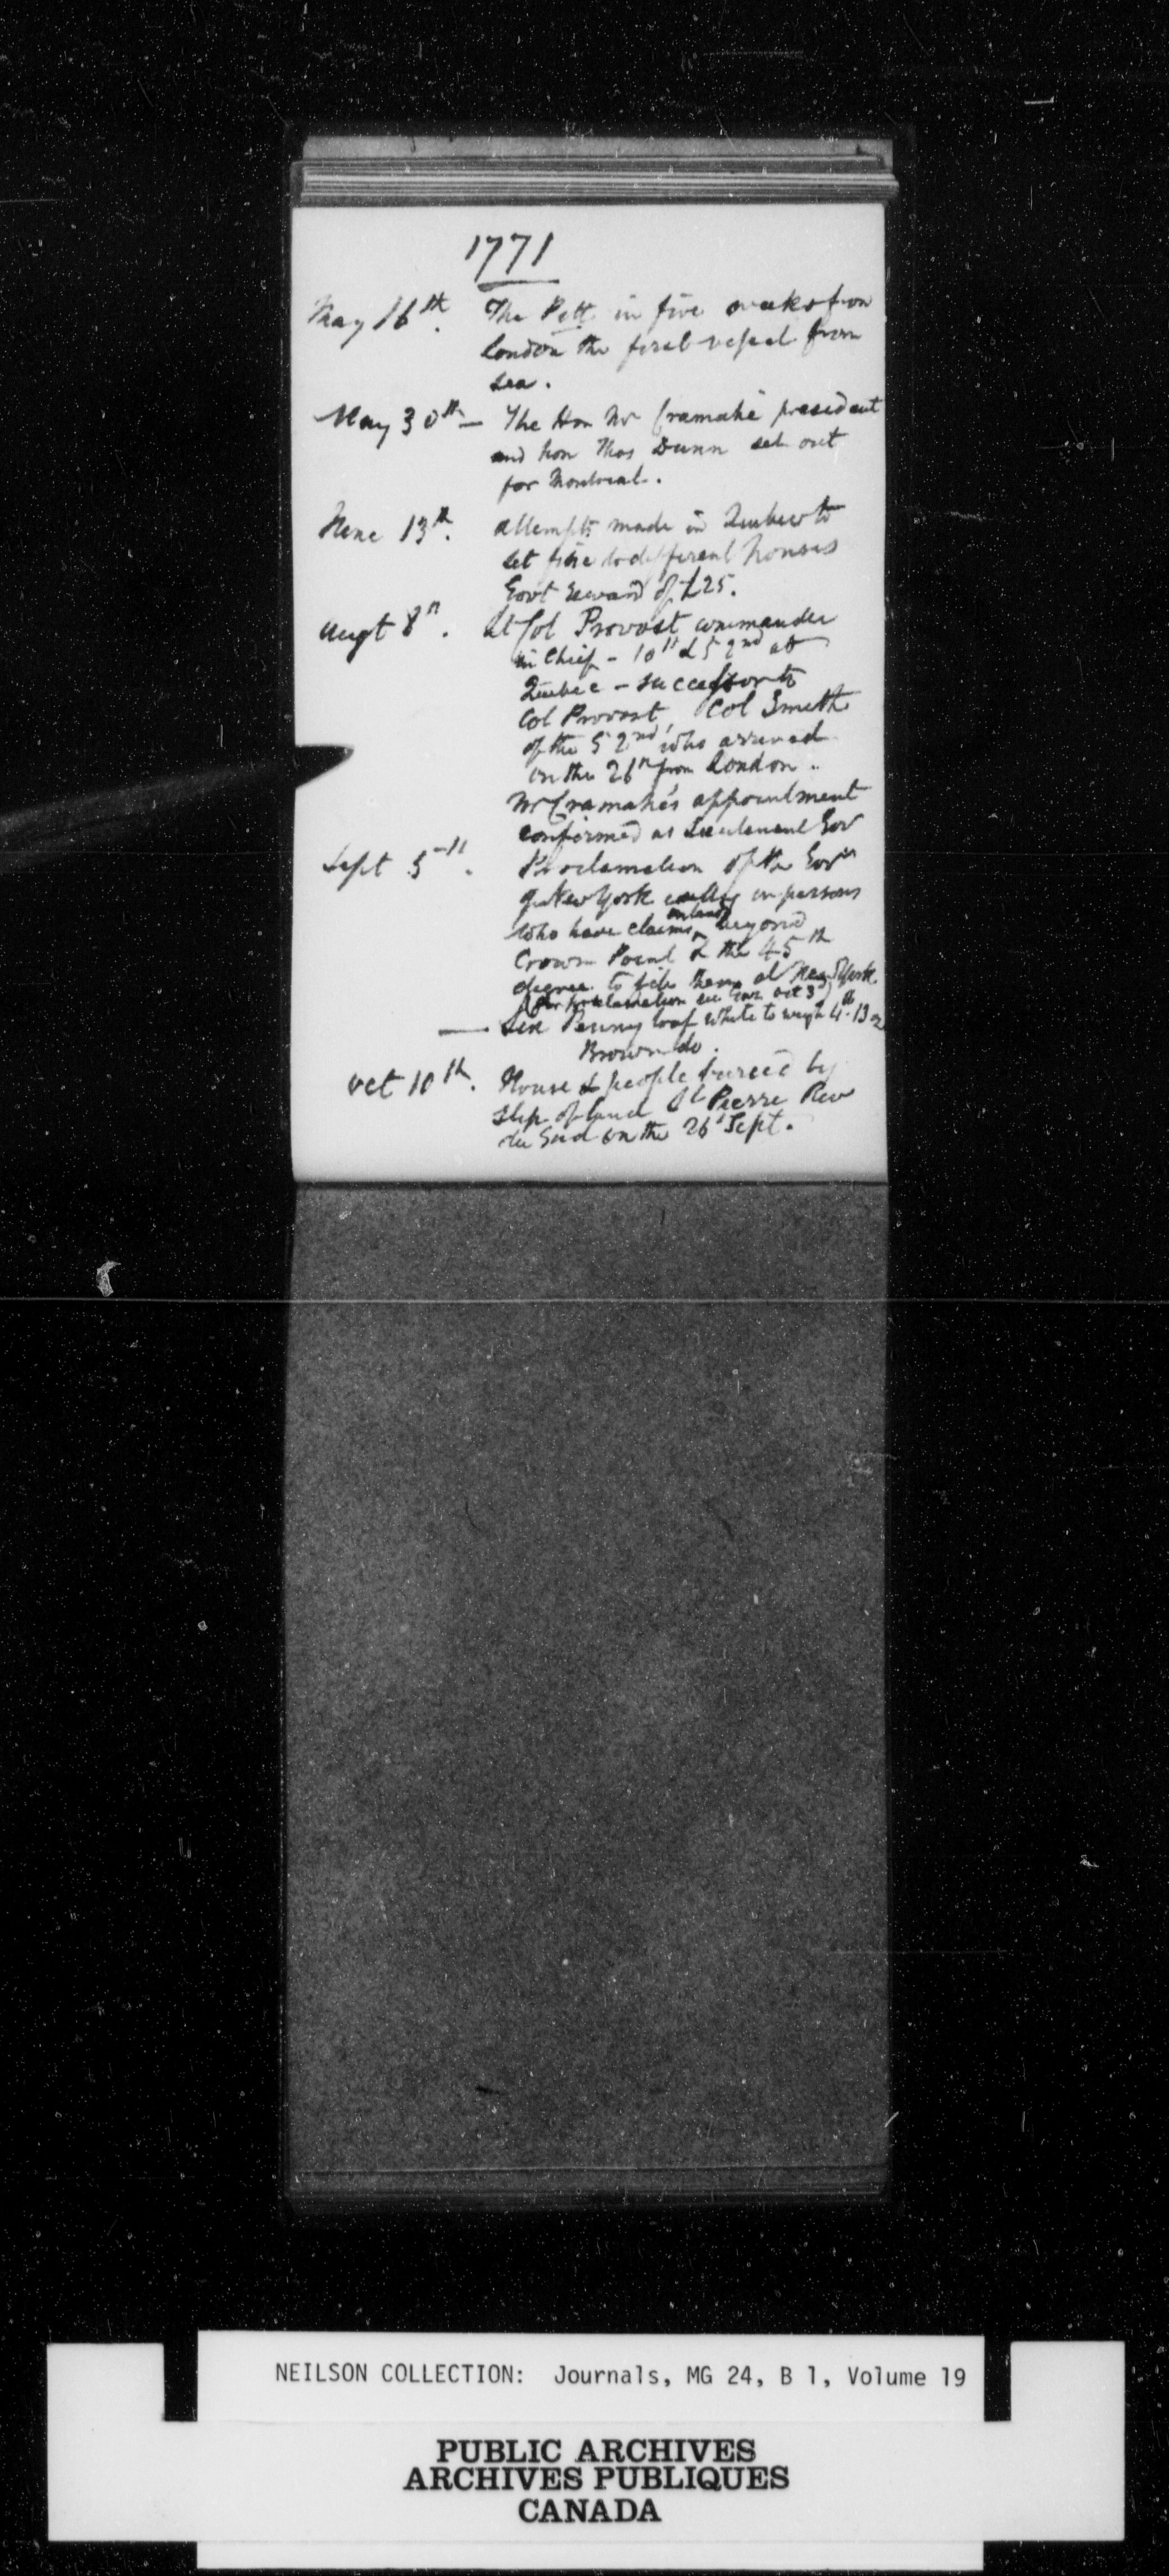 1771
May 16th. The Pett in five weeks from
London the first vessel from
sea.
May 30th — The Hon Mr Cramahé president
and hon Thos Dunn set out
for Montreal.
June 13th. attempts made in Quebec to
set fire to different houses
Govt reward of £25.
Augt 8th. Lt Col Provost commander
in Chief - 10th & 52nd at
Quebec - successor to
Col Provost, Col Smith
of the 52nd who arrived
on the 26th from London.
Mr Cramahé's appointment
confirmed as Lieutenant Gov
Sept 5th. Proclamation of the Govr
of New York calling in persons
who have claims on land beyond
Crown Point & the 45th
degree to file them at New York
for proclamation see Gaz. Oct 3d
— Six Penny loaf white to weigh 4lb 13 oz
Brown do.
Oct 10th. House & people buried by
slip of land St Pierre Riv
du Sud on the 26th Sept.
NEILSON COLLECTION: Journals, MG 24, B 1, Volume 19
PUBLIC ARCHIVES
ARCHIVES PUBLIQUES
CANADA